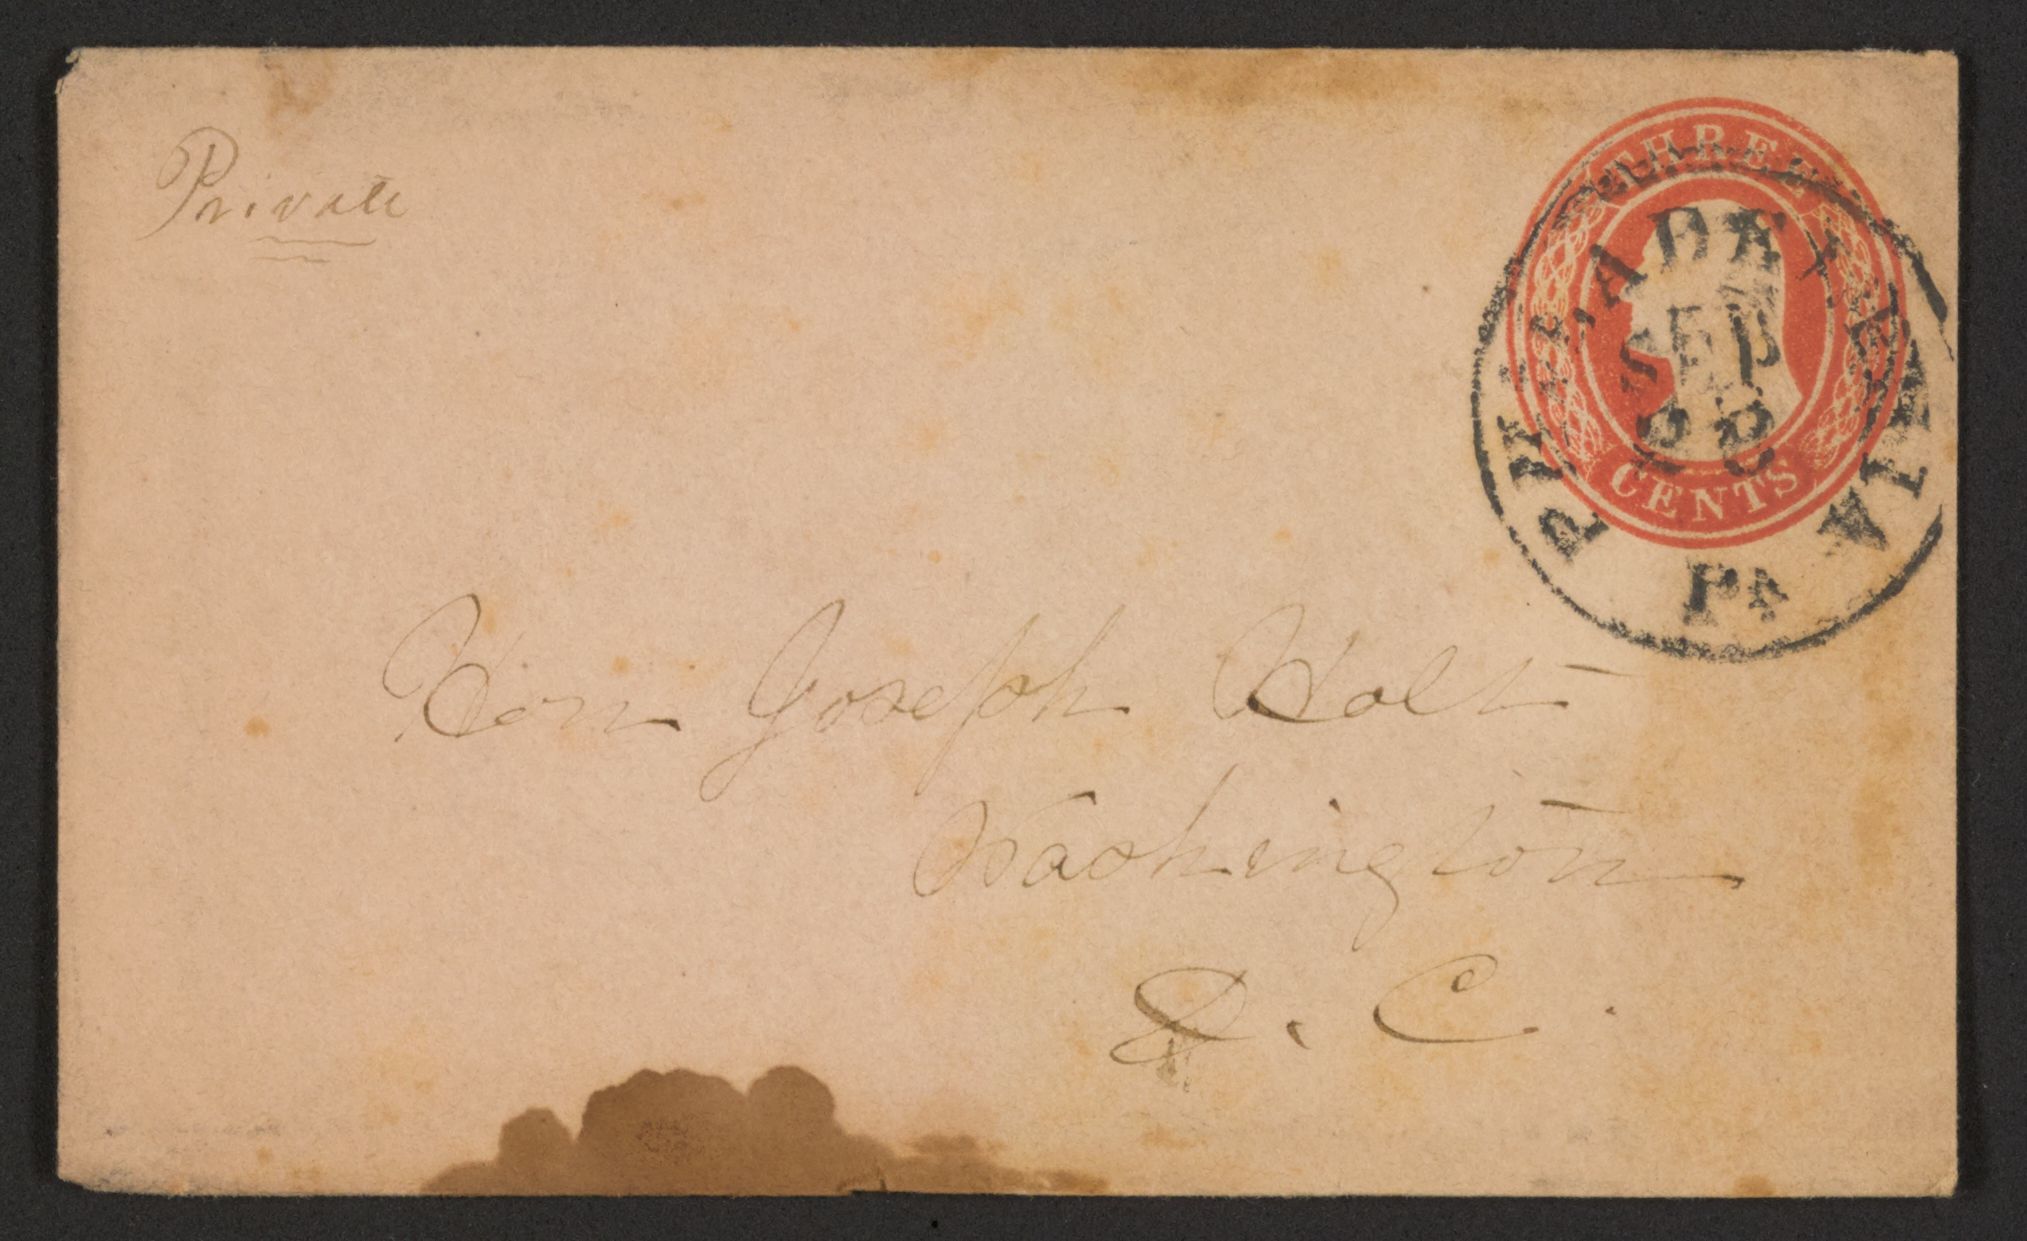 Private
THREE
CENTS
PHILADELPHIA
SEP
Pa
Hon Joseph Holt
Washington
D. C.